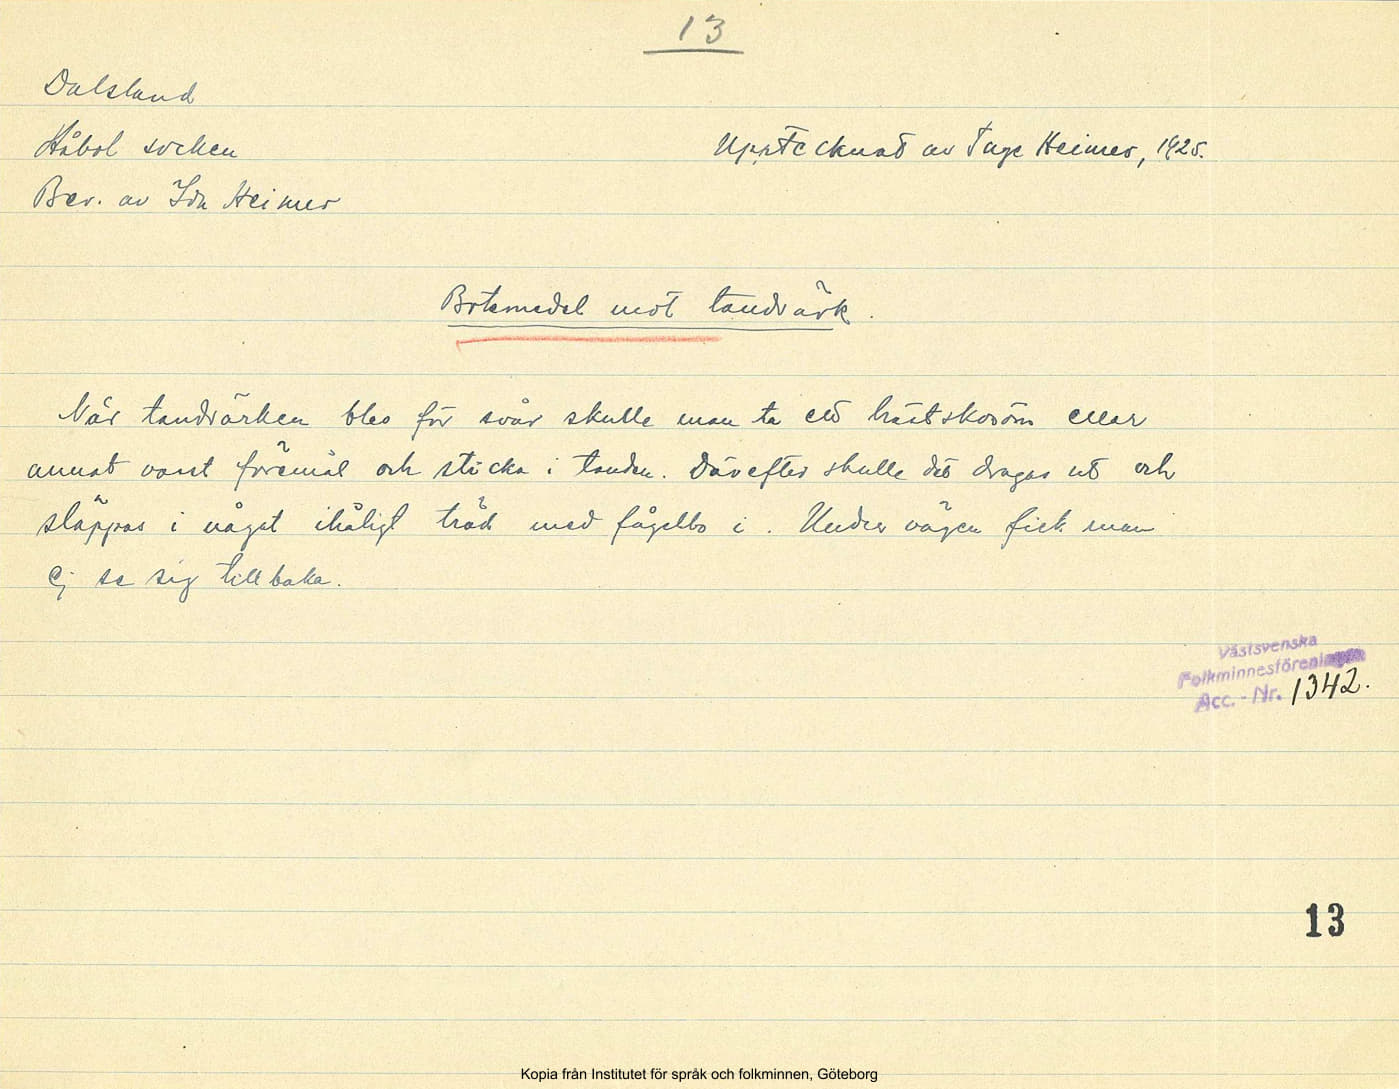 13
Dalsland
Håbol socken
Upptecknat av Tage Heimer, 1925.
Ber. av Ida Heimer
Botemedel mot tandvärk.
När tandvärken blev för svår skulle man ta ett hästskosöm eller
annat vasst föremål och sticka i tanden. Därefter skulle det dragas ut och
släppas i något ihåligt träd med fågelbo i. Under vägen fick man
ej se sig tillbaka.
Västsvenska
Folkminnesföreningen
Acc. - Nr. 1342.
13
Kopia från Institutet för språk och folkminnen, Göteborg